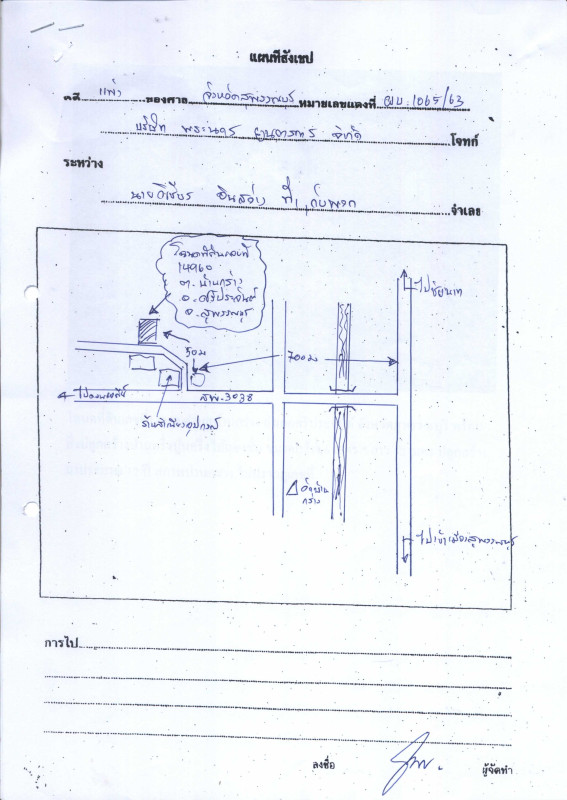 แผนที่สังเขป
คดี แพ่ง ของศาล จังหวัดสุพรรณบุรี หมายเลขแดงที่ ผบ. 1065/63
บริษัท พระนคร ยานยนต์ จำกัด โจทก์
ระหว่าง
นาย อินสว่าง ที่ 1 กับพวก จำเลย
โฉนดที่ดินเลขที่
14960
ต. บ้านกร่าง
อ. ศรีประจันต์
จ. สุพรรณบุรี
ไปชัยนาท
50ม
700ม
ไปดอนเจดีย์
สพ.3038
ร้าน
วัดบ้าน
กร่าง
ไปเข้าเมืองสุพรรณบุรี
การไป
ลงชื่อ ผู้จัดทำ